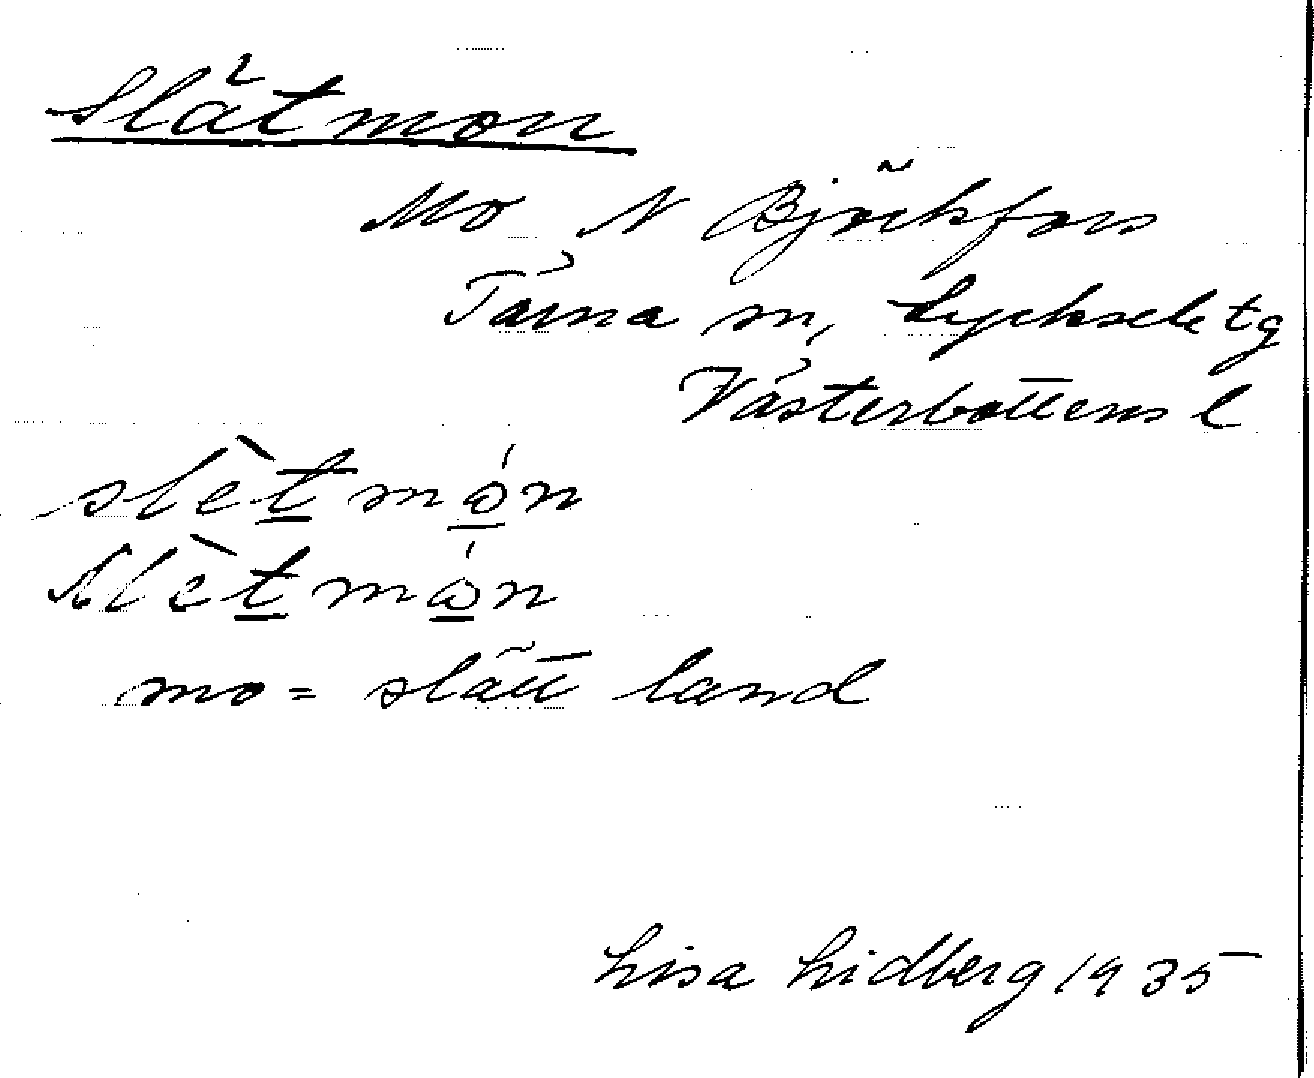 Slätmon
Mo N Björkfors
Tärna sn, Lycksele tg
Västerbottens l
slètmó̱n
slètmó̱n
mo = slätt land
Lisa Lidberg 1935